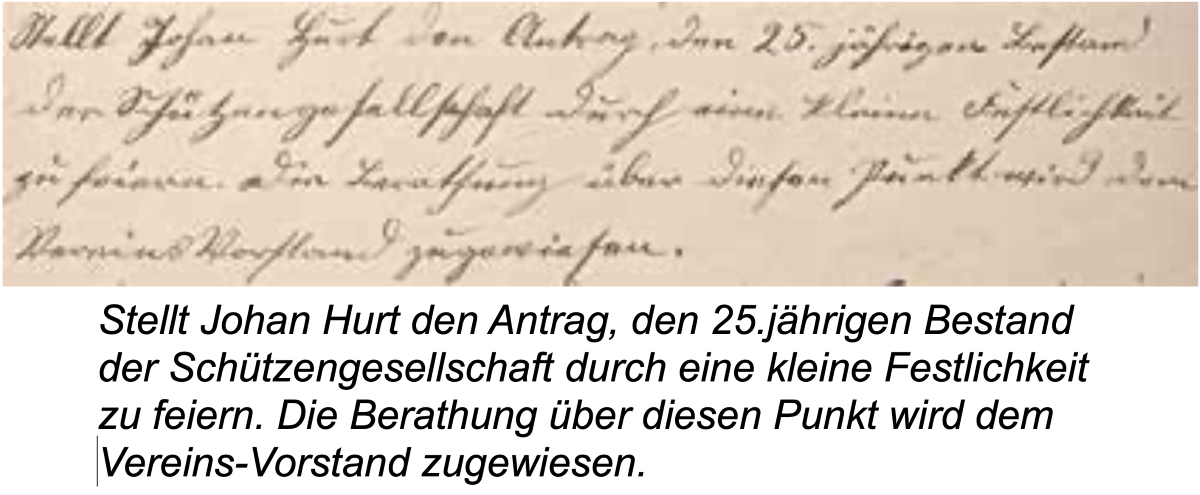 Stellt Johan Hurt den Antrag, den 25. jährigen Bestand
der Schützengesellschaft durch eine kleine Festlichkeit
zu feiern. Die Berathung über diesen Punkt wird dem
Vereins Vorstand zugewiesen.
Stellt Johan Hurt den Antrag, den 25.jährigen Bestand
der Schützengesellschaft durch eine kleine Festlichkeit
zu feiern. Die Berathung über diesen Punkt wird dem
Vereins-Vorstand zugewiesen.